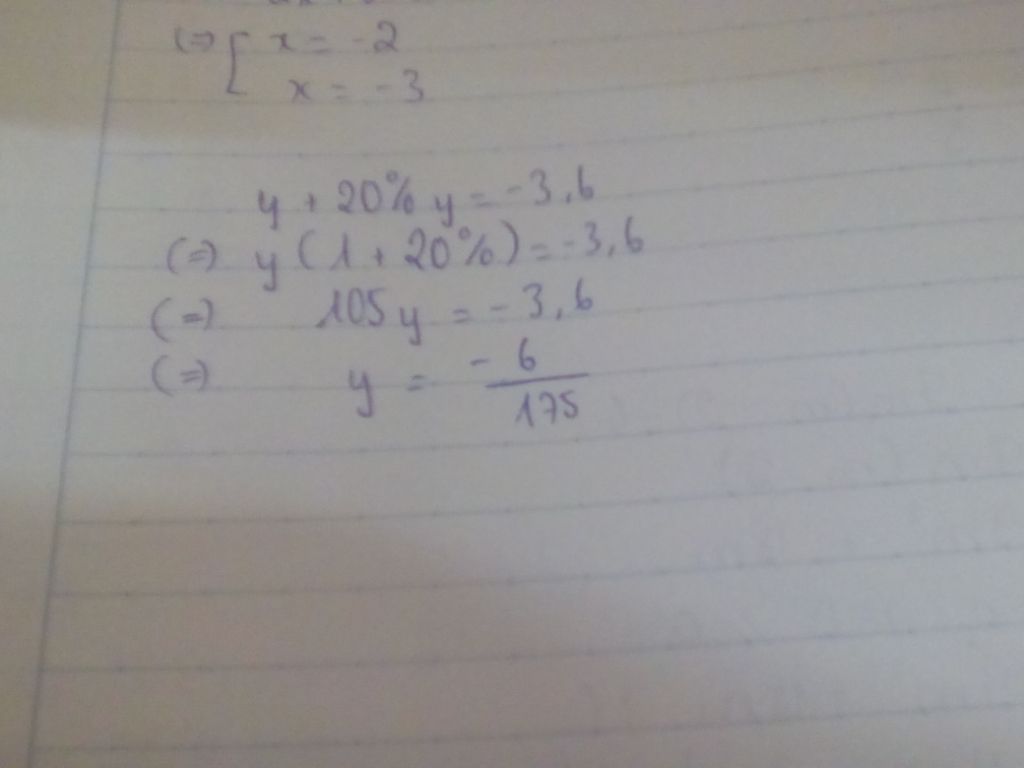 (=> [ x = -2
x = -3
y + 20% y = -3,6
(=) y (1 + 20%) = -3,6
(=) 105y = -3,6
(=) y = -6/175